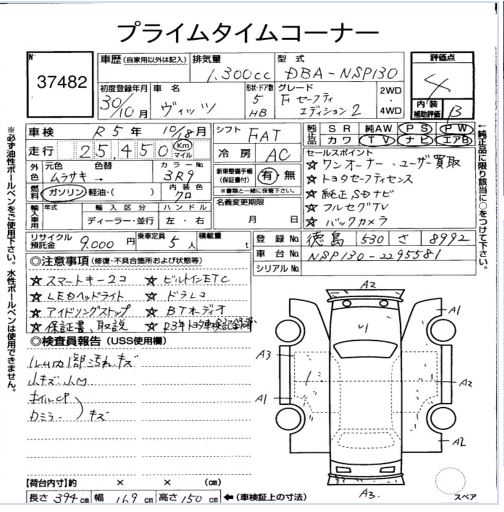 プライムタイムコーナー
No 37482
車歴 (自家用以外は記入) 排気量 1.300cc 型式 DBA-NSP130 評価点 4
初度登録年月 30/10月 車名 ヴィッツ 形状・ドア数 5 HB グレード F セーフティ エディション2 2WD・4WD 内装 補助評価 B
車検 R5年 10/18月 シフト FAT 純正品 SR 純AW PS PW カワ TV ナビ エアB
走行 25,450 Km マイル 冷房 AC セールスポイント
外色 元色 ムラサキ → 色替 カラーNo 3R9 新車整備手帳(保証書付) 有・無 ※書類と一緒に保管下さい。
☆ワンオーナー・ユーザー買取
☆トヨタセーフティセンス
燃料 ガソリン 軽油・( ) 内装色 クロ ☆純正SDナビ
輸入車用 年式 輸入区分 ディーラー・並行 ハンドル 左・右 名義変更期限 月 日
☆フルセグTV
☆バックカメラ
リサイクル預託金 9,000円 乗車定員 5人 積載量 t 登録No 徳島 530 さ 8992
車台No NSP130-2295581
シリアルNo
◎注意事項 (修復・不具合箇所および状態等)
☆スマートキー2コ ☆ビルトインETC
☆LEDヘッドライト ☆ドラレコ
☆アイドリングストップ ☆BTオーディオ
☆保証書、取説
◎検査員報告 (USS使用欄)
キズ
小キズ
ミラー キズ
【荷台内寸】 × × (cm)
長さ 394cm 幅 169cm 高さ 150cm ←(車検証上の寸法)
A2
A1
A3
A2
A1
A2
A3.
スペア
※必ず油性ボールペンをご使用下さい。水性ボールペンは使用できません。
※純正品に限り該当に○をして下さい